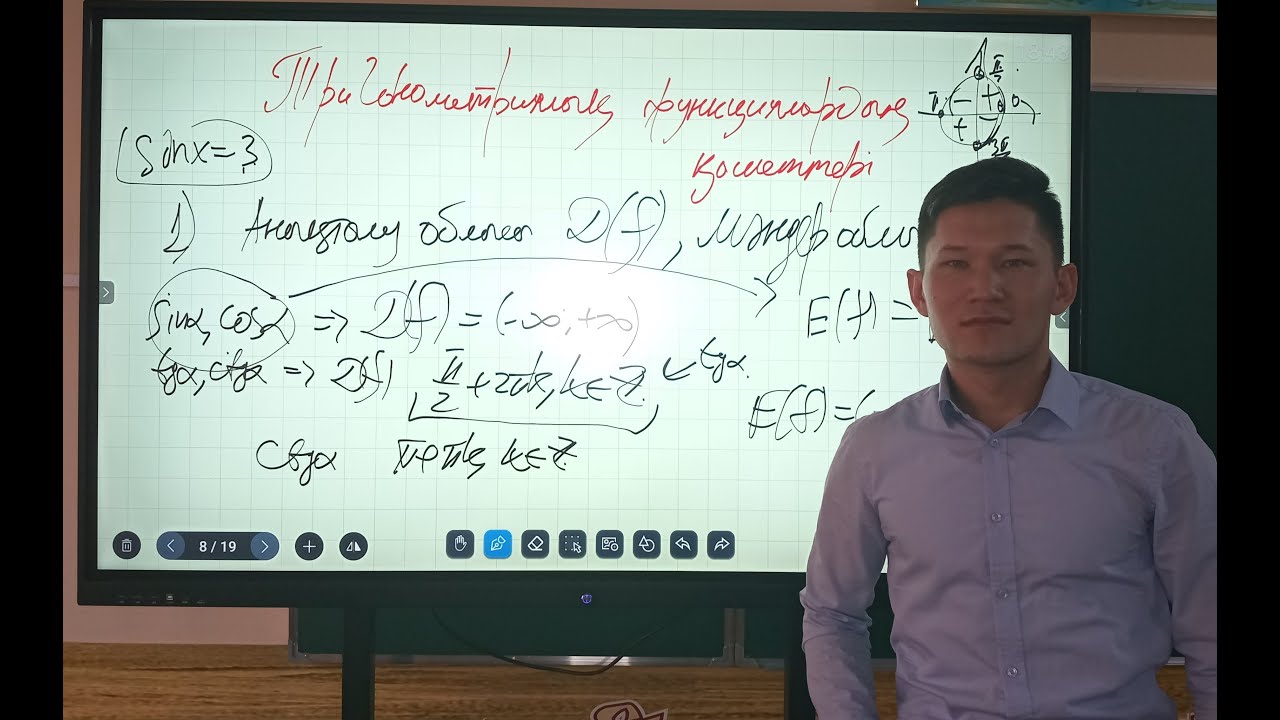 Тригонометриялық функциялардың
қасиеттері
sinx=3
1) Анықталу облысы D(f), мәндер облы
sinα, cosα => D(f) = (-∞; +∞)
E(f) =
tgα, ctgα => D(f) π/2 + 2πk, k∈Z. ← tgα.
E(f) = (
ctgα π+πk, k∈Z.
π/2
π - + 0
+ -
3π/2
8 / 19